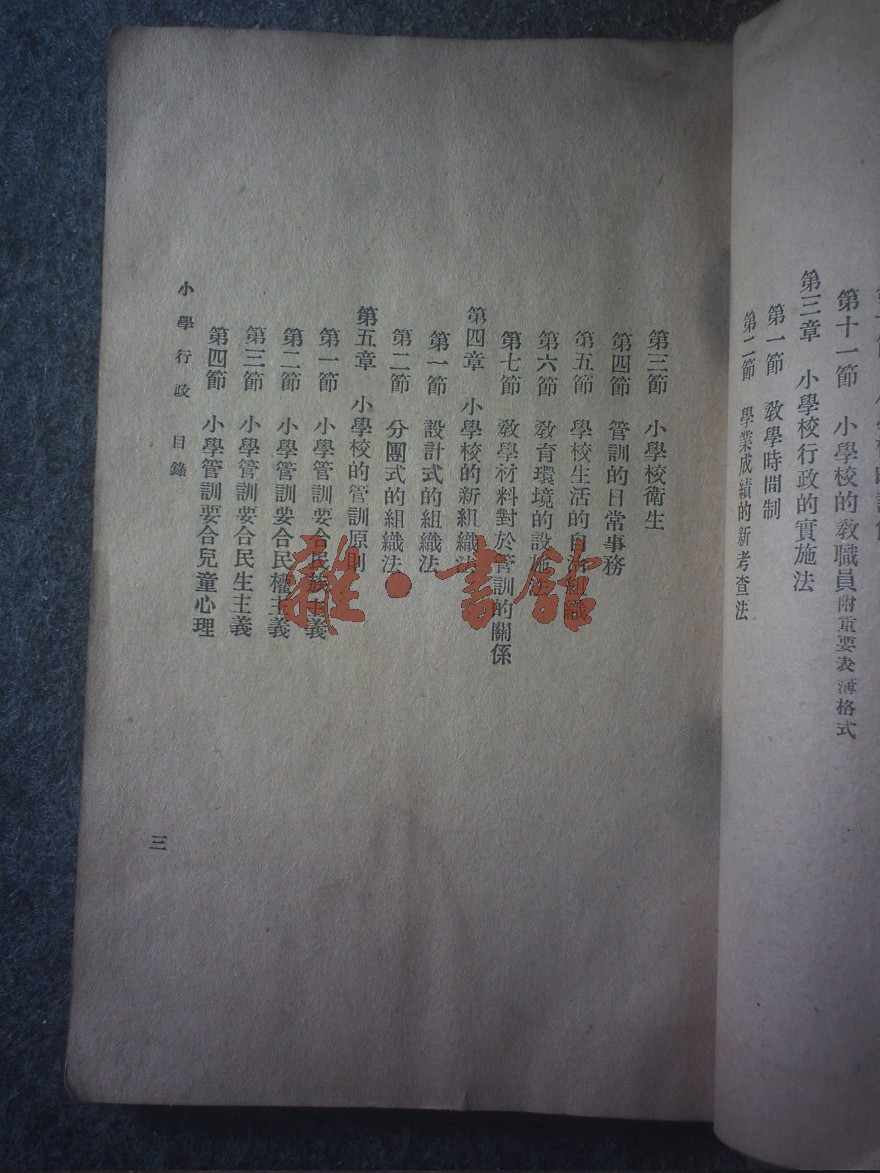 第十一節　小學校的教職員附重要表簿格式
第三章　小學校行政的實施法
第一節　教學時間制
第二節　學業成績的新考查法
第三節　小學校衛生
第四節　管訓的日常事務
第五節　學校生活的自治組織
第六節　教育環境的設施法
第七節　教學材料對於管訓的關係
第四章　小學校的新組織法
第一節　設計式的組織法
第二節　分團式的組織法
第五章　小學校的管訓原則
第一節　小學管訓要合民族主義
第二節　小學管訓要合民權主義
第三節　小學管訓要合民生主義
第四節　小學管訓要合兒童心理
小學行政　目錄
三
雜·書館